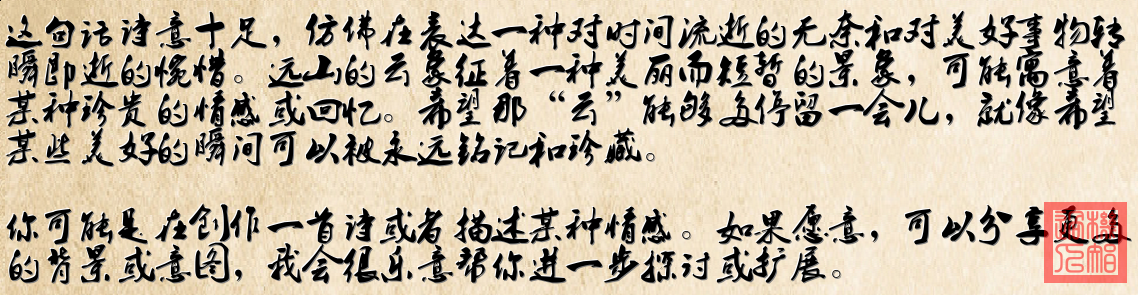 这句话诗意十足，仿佛在表达一种对时间流逝的无奈和对美好事物转
瞬即逝的惋惜。远山的云象征着一种美丽而短暂的景象，可能寓意着
某种珍贵的情感或回忆。希望那“云”能够多停留一会儿，就像希望
某些美好的瞬间可以被永远铭记和珍藏。
你可能是在创作一首诗或者描述某种情感。如果愿意，可以分享更多
的背景或意图，我会很乐意帮你进一步探讨或扩展。